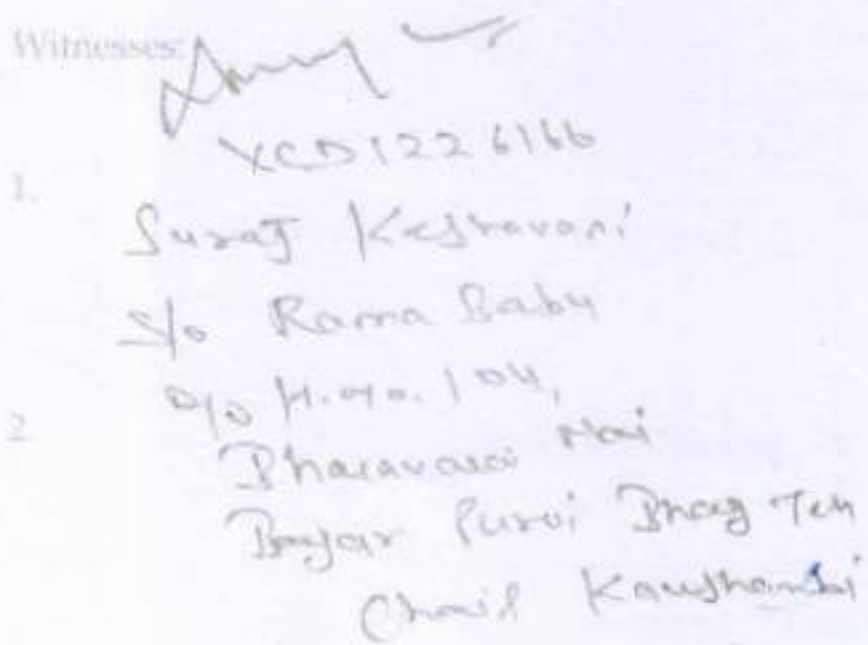 Witnesses:
XCD1226166
1.
Suraj Kesharvani
S/o Rama Babu
R/o H.no. 104,
2
Bharavari Nai
Bajar Purvi Bhag Teh
Chail Kaushambi